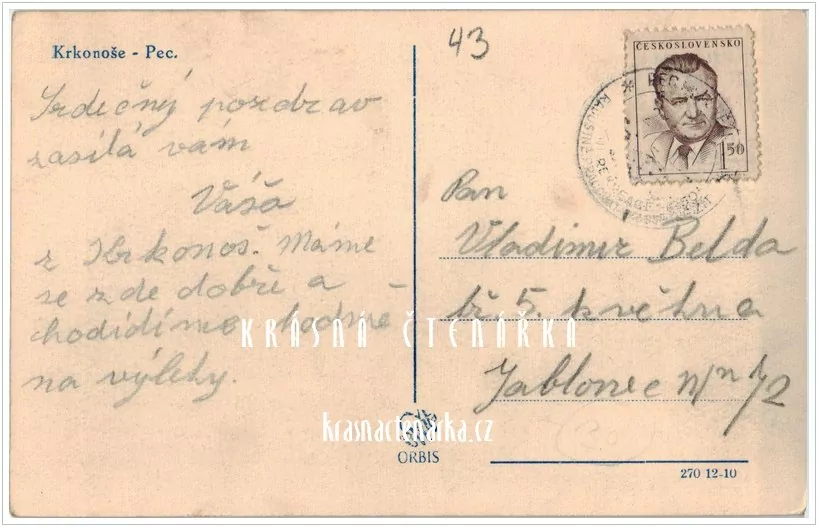 Krkonoše - Pec.
43
ČESKOSLOVENSKO
1.50
Srdečný pozdrav
zasílá vám
Váša
z Krkonoš. Máme
se zde dobře a
chodidíme hodně
na výlety.
Pan
Vladimír Belda
tř 5. května
Jablonec n/n 72
KRÁSNÁ ČTENÁŘKA
krasnactenarka.cz
ORBIS
270 12-10